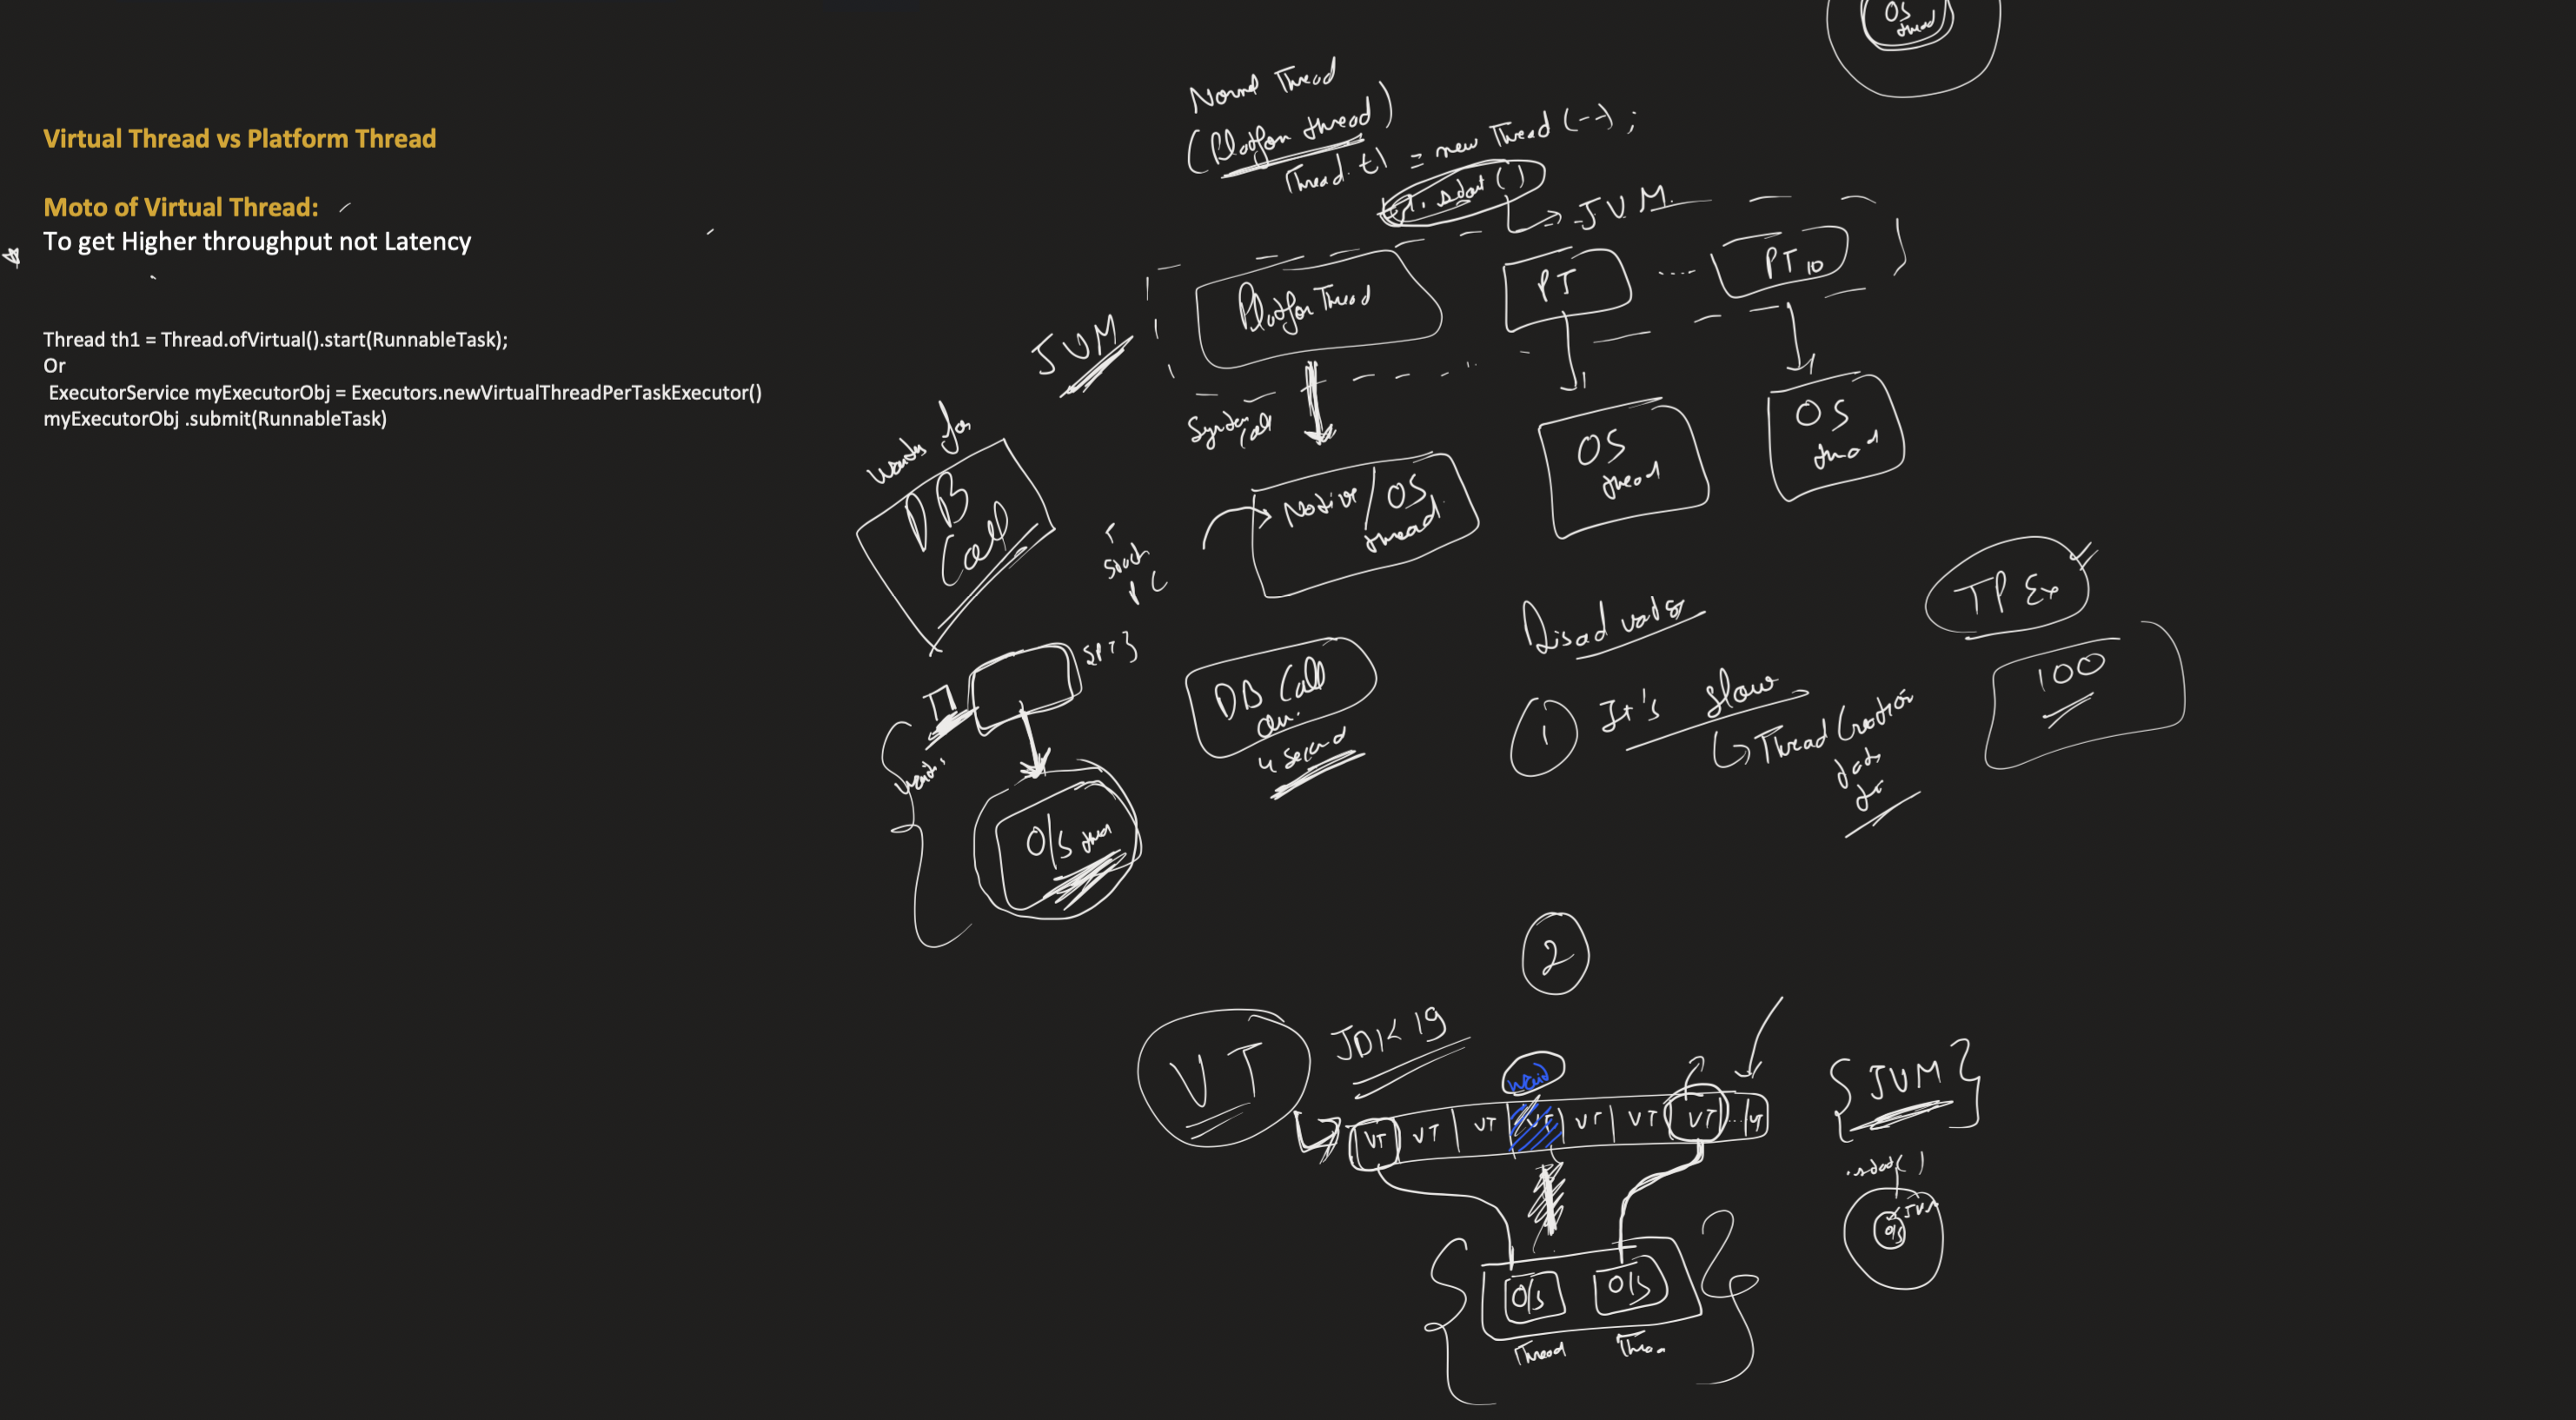 Virtual Thread vs Platform Thread
Moto of Virtual Thread:
To get Higher throughput not Latency
Thread th1 = Thread.ofVirtual().start(RunnableTask);
Or
ExecutorService myExecutorObj = Executors.newVirtualThreadPerTaskExecutor()
myExecutorObj .submit(RunnableTask)
OS
thread
Normal Thread
(Platform thread)
Thread t1 = new Thread (--);
t1.start()
JVM
JVM
Platform Thread
PT
PT10
System
Call
Native/OS
thread
OS
thread
OS
thread
DB
Call
PC
{PT}
T1
O/S
DB Call
4 second
1
It's slow
Thread Creation
TP Ex
100
2
VT
JDK 19
wait
VT VT VT VT VT VT VT ... VT
{JVM}
.start()
O/S
JVM
O/S O/S
Thread